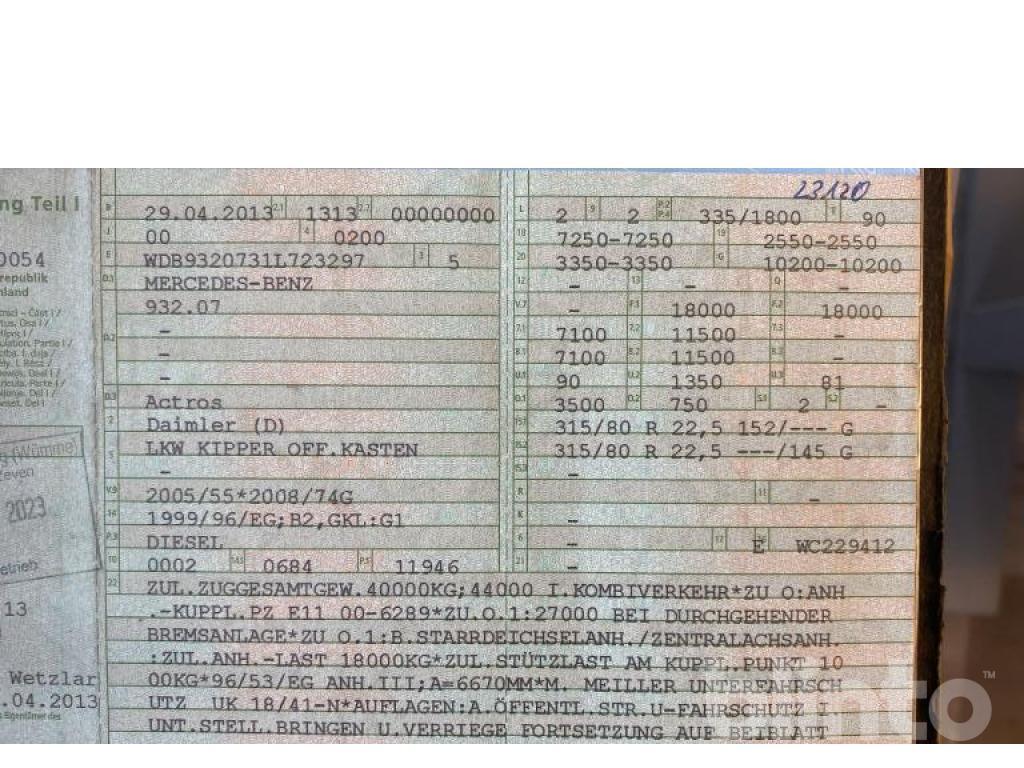 23120
ng Teil I
B 29.04.2013 2.1 1313 2.2 00000000 L 2 9 2 P.2 P.4 335/1800 T 90
J 00 4 0200 18 7250-7250 19 2550-2550
0054
E WDB9320731L723297 3 5 20 3350-3350 G 10200-10200
republik
D.1 MERCEDES-BENZ 12 – 13 – Q –
nland
932.07 V.7 – F.1 18000 F.2 18000
D.2 – 7.1 7100 7.2 11500 7.3 –
– 8.1 7100 8.2 11500 8.3 –
– U.1 90 U.2 1350 U.3 81
D.3 Actros O.1 3500 O.2 750 S.1 2 S.2 –
2 Daimler (D) 15.1 315/80 R 22,5 152/--- G
5 LKW KIPPER OFF.KASTEN 15.2 315/80 R 22,5 ---/145 G
(Wümme)
– 15.3 –
even
V.9 2005/55*2008/74G R 11 –
2023
14 1999/96/EG;B2,GKL:G1 K –
P.3 DIESEL 6 – 17 E 16 WC229412
etrieb
10 0002 14.1 0684 P.1 11946 21 –
22 ZUL.ZUGGESAMTGEW.40000KG;44000 I.KOMBIVERKEHR*ZU O:ANH
13
.-KUPPL.PZ E11 00-6289*ZU.O.1:27000 BEI DURCHGEHENDER
BREMSANLAGE*ZU O.1:B.STARRDEICHSELANH./ZENTRALACHSANH.
:ZUL.ANH.-LAST 18000KG*ZUL.STÜTZLAST AM KUPPL.PUNKT 10
Wetzlar
00KG*96/53/EG ANH.III;A=6670MM*M. MEILLER UNTERFAHRSCH
.04.2013
UTZ UK 18/41-N*AUFLAGEN:A.ÖFFENTL.STR.U-FAHRSCHUTZ I
UNT.STELL.BRINGEN U.VERRIEGE FORTSETZUNG AUF BEIBLATT